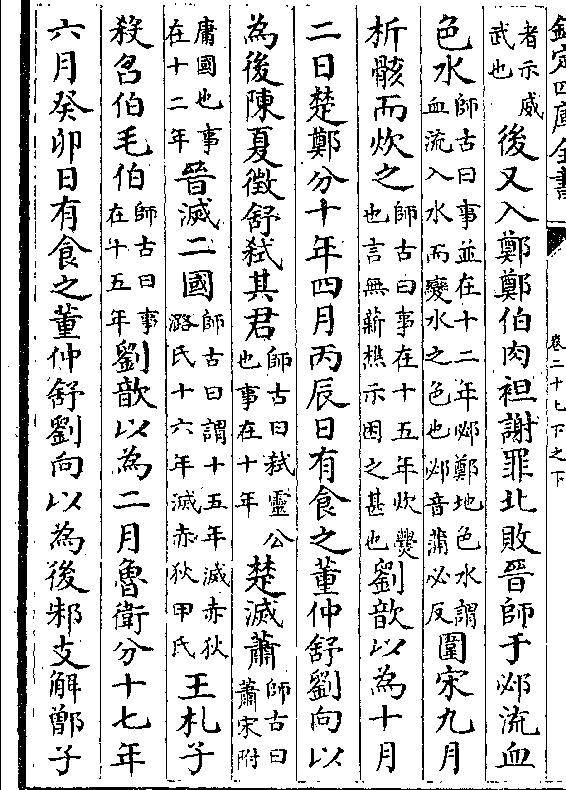 欽定四庫全書
卷二十七下之下
者示威武也後又入鄭鄭伯肉袒謝罪北敗晉師于邲流血
色水師古曰事並在十二年邲鄭地色水謂血流入水而變水之色也邲音蒲必反圍宋九月
析骸而炊之師古曰事在十五年炊爨也言無薪樵示困之甚也劉歆以為十月
二日楚鄭分十年四月丙辰日有食之董仲舒劉向以
為後陳夏徵舒弑其君師古曰弑靈公也事在十年楚滅蕭師古曰蕭宋附
庸國也事在十二年晉滅二國師古曰謂十五年滅赤狄潞氏十六年滅赤狄甲氏王札子
殺召伯毛伯師古曰事在十五年劉歆以為二月魯衛分十七年
六月癸卯日有食之董仲舒劉向以為後邾支解鄫子